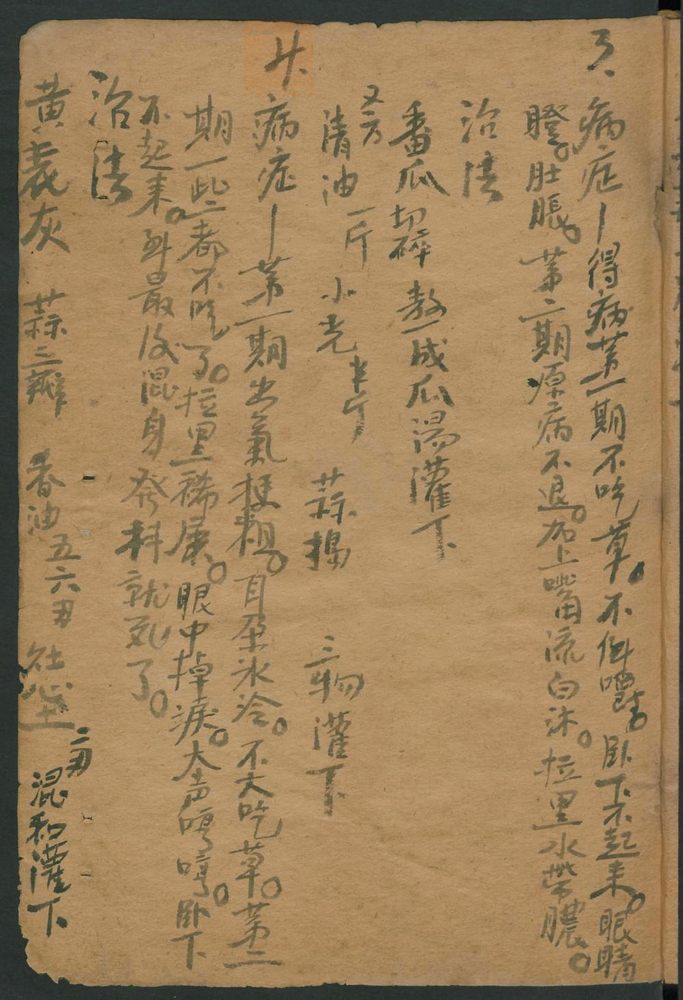 3、病症一得病苐一期不吃草。不倒嚼。卧下不起来。眼睛
瞪。肚脹。苐二期原病不退。加上嘴流白沫。拉黑水帶膿。
治法
番瓜切碎熬成瓜湯灌下
又方
清油一斤 小 半斤 蒜搗 三物灌下
4、病症一苐一期出氣梗粗。耳朶氷冷。不大吃草。苐二
期一些都不吃了。拉黑稀屎。眼中掉淚。大声哼哼。卧下
不起来。到最後混身發抖就死了。
治法
黄表灰 蒜三瓣 香油五六両 社心土二両 混和灌下